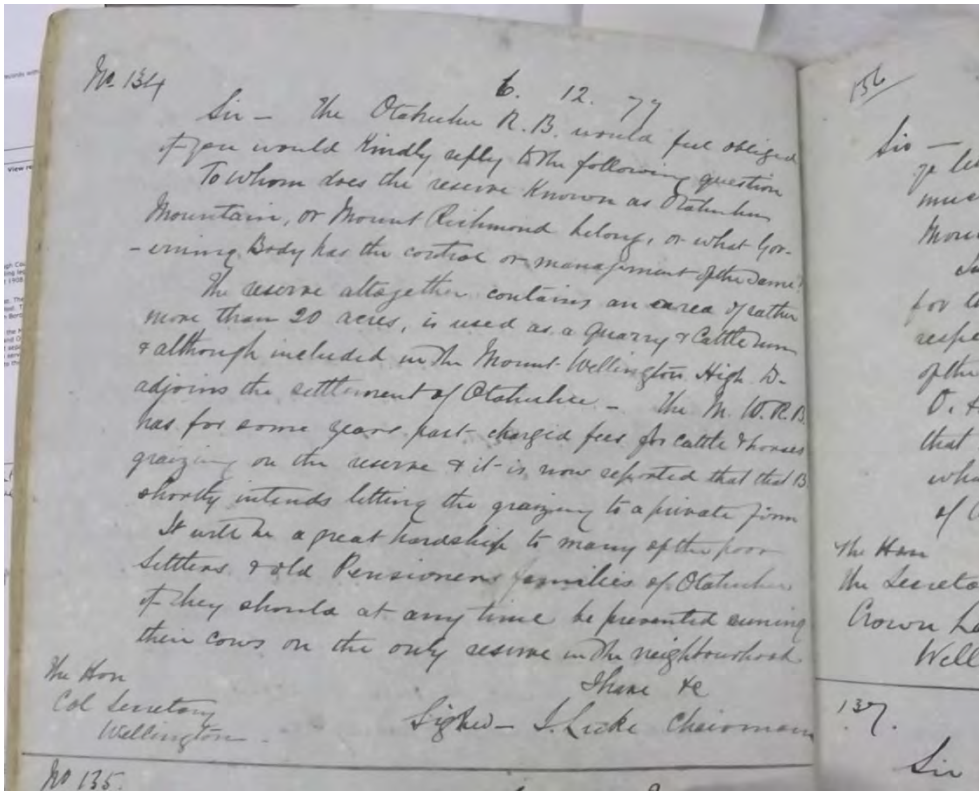 No. 134
6. 12. 77
Sir — The Otahuhu R. B. would feel obliged
if you would Kindly reply to the following question
To whom does the reserve Known as Otahuhu
Mountain, or Mount Richmond belong, or what Gov-
-erning Body has the control or management of the same?
The reserve altogether contains an area of rather
more than 20 acres, is used as a quarry & Cattle run
& although included in the Mount Wellington High. D-
adjoins the settlement of Otahuhu — The M. W. R. B.
has for some years past charged fees for cattle & horses
graizing on the reserve & it is now reported that that B
shortly intends letting the graizing to a private firm
It will be a great hardship to many of the poor
Settlers & old Pensioners families of Otahuhu
if they should at any time be prevented running
their cows on the only reserve in the neighbourhood
I have &c
Signed — Chairman
The Hon
Col Secretary
Wellington
No 135.
136
Sir —
for
of the
that
of
The Hon
The Secreta
Crown La
Well
137.
Sir